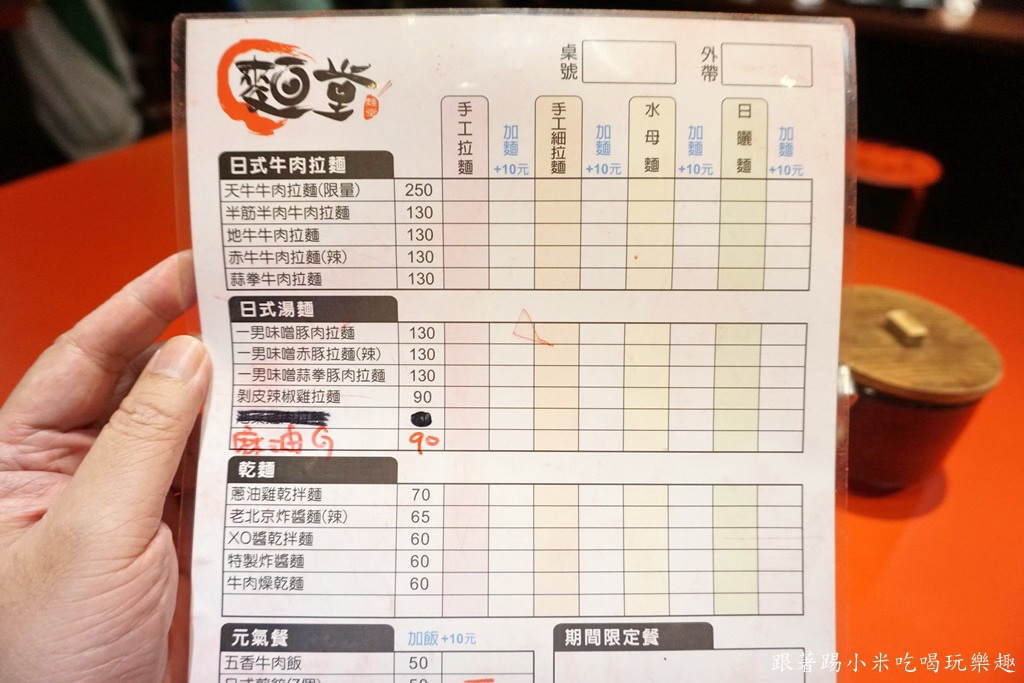 麵堂
桌號
外帶
手工拉麵
加麵+10元
手工細拉麵
加麵+10元
水母麵
加麵+10元
日曬麵
加麵+10元
日式牛肉拉麵
天牛牛肉拉麵(限量) 250
半筋半肉牛肉拉麵 130
地牛牛肉拉麵 130
赤牛牛肉拉麵(辣) 130
蒜拳牛肉拉麵 130
日式湯麵
一男味噌豚肉拉麵 130
一男味噌赤豚拉麵(辣) 130
一男味噌蒜拳豚肉拉麵 130
剝皮辣椒雞拉麵 90
麻油G 90
乾麵
蔥油雞乾拌麵 70
老北京炸醬麵(辣) 65
XO醬乾拌麵 60
特製炸醬麵 60
牛肉燥乾麵 60
元氣餐 加飯+10元
期間限定餐
五香牛肉飯 50
跟著踢小米吃喝玩樂趣